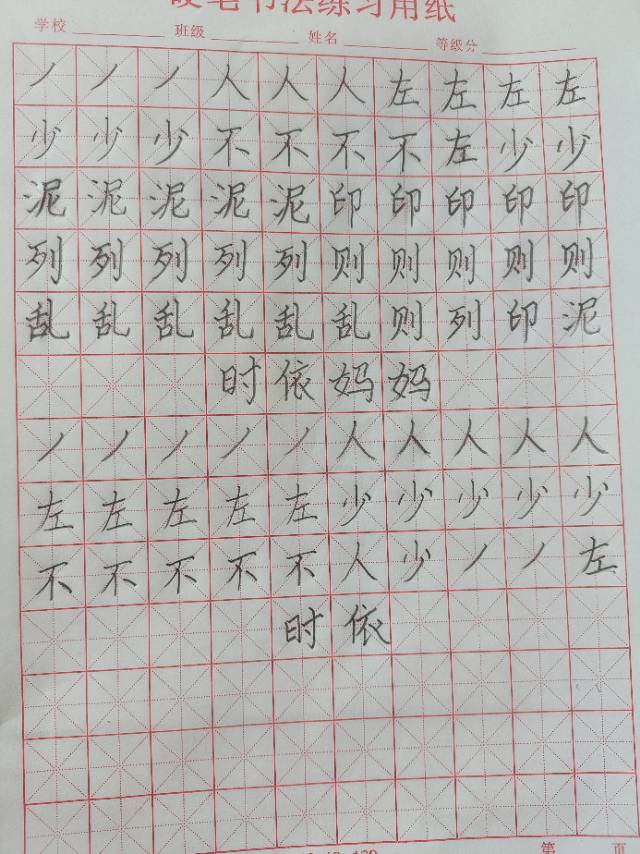 硬笔书法练习用纸
学校 班级 姓名 等级分
丿丿丿人人人左左左左
少少少不不不不左少少
泥泥泥泥泥印印印印印
列列列列列则则则则则
乱乱乱乱乱乱则列印泥
时依妈妈
丿丿丿丿丿人人人人人
左左左左左少少少少少
不不不不不人少丿丿左
时依
第 页